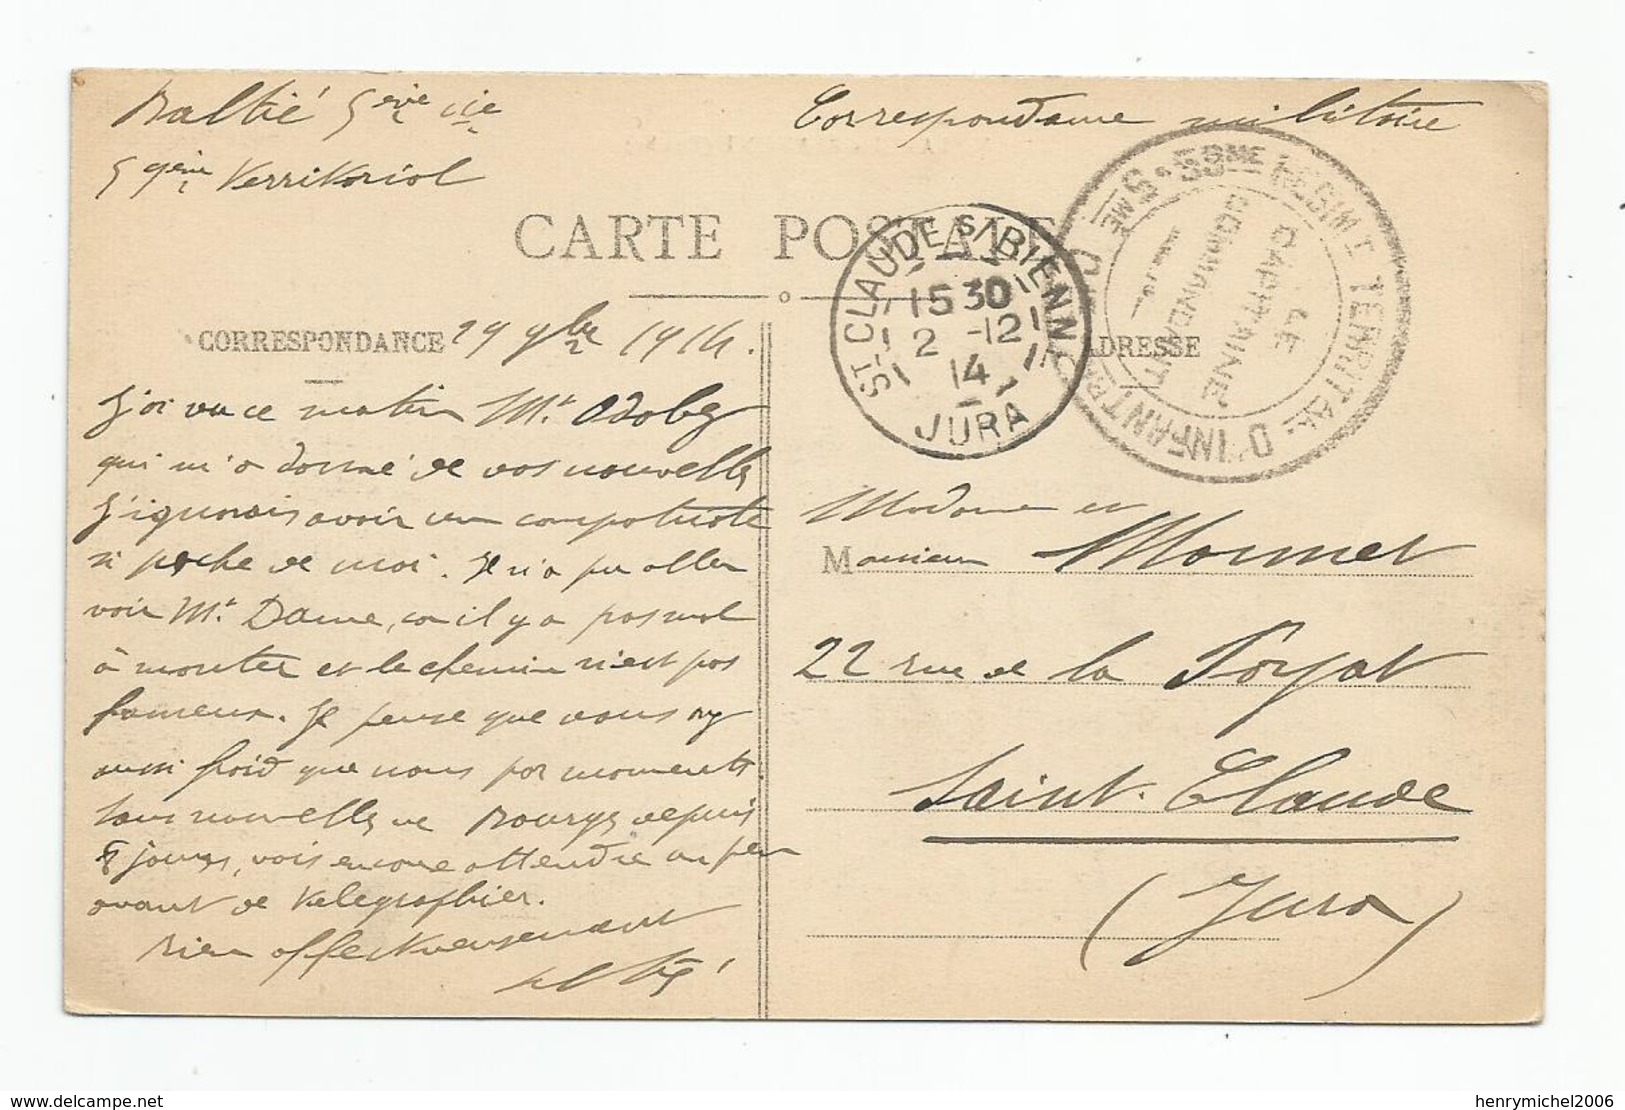 Baltié 5ème Cie
59ème Territorial
Correspondance militaire
CARTE POSTALE
CORRESPONDANCE
29 9bre 1914.
ADRESSE
ST-CLAUDE-S/BIENNE
15 30
2 -12
14
JURA
59ME REGIMT TERRITAL D'INFANTERIE
5ME
LE
CAPITAINE
COMMANDANT
J'ai vu ce matin Mr.
qui m'a donné de vos nouvelles
J'ignorais avoir un compatriote
si proche de moi. Je n'a pu aller
voir Mr. Dame, car il y a pas mal
à monter et le chemin n'est pas
fameux. Je pense que vous avez
aussi froid que nous par moments.
Sans nouvelles de Bourges depuis
8 jours, vais encore attendre un peu
avant de télégraphier.
Bien affectueusement
Baltié
Madame et
Monsieur Monnet
22 rue de la Poyat
Saint-Claude
(Jura)
henrymichel2006
delcampe.net